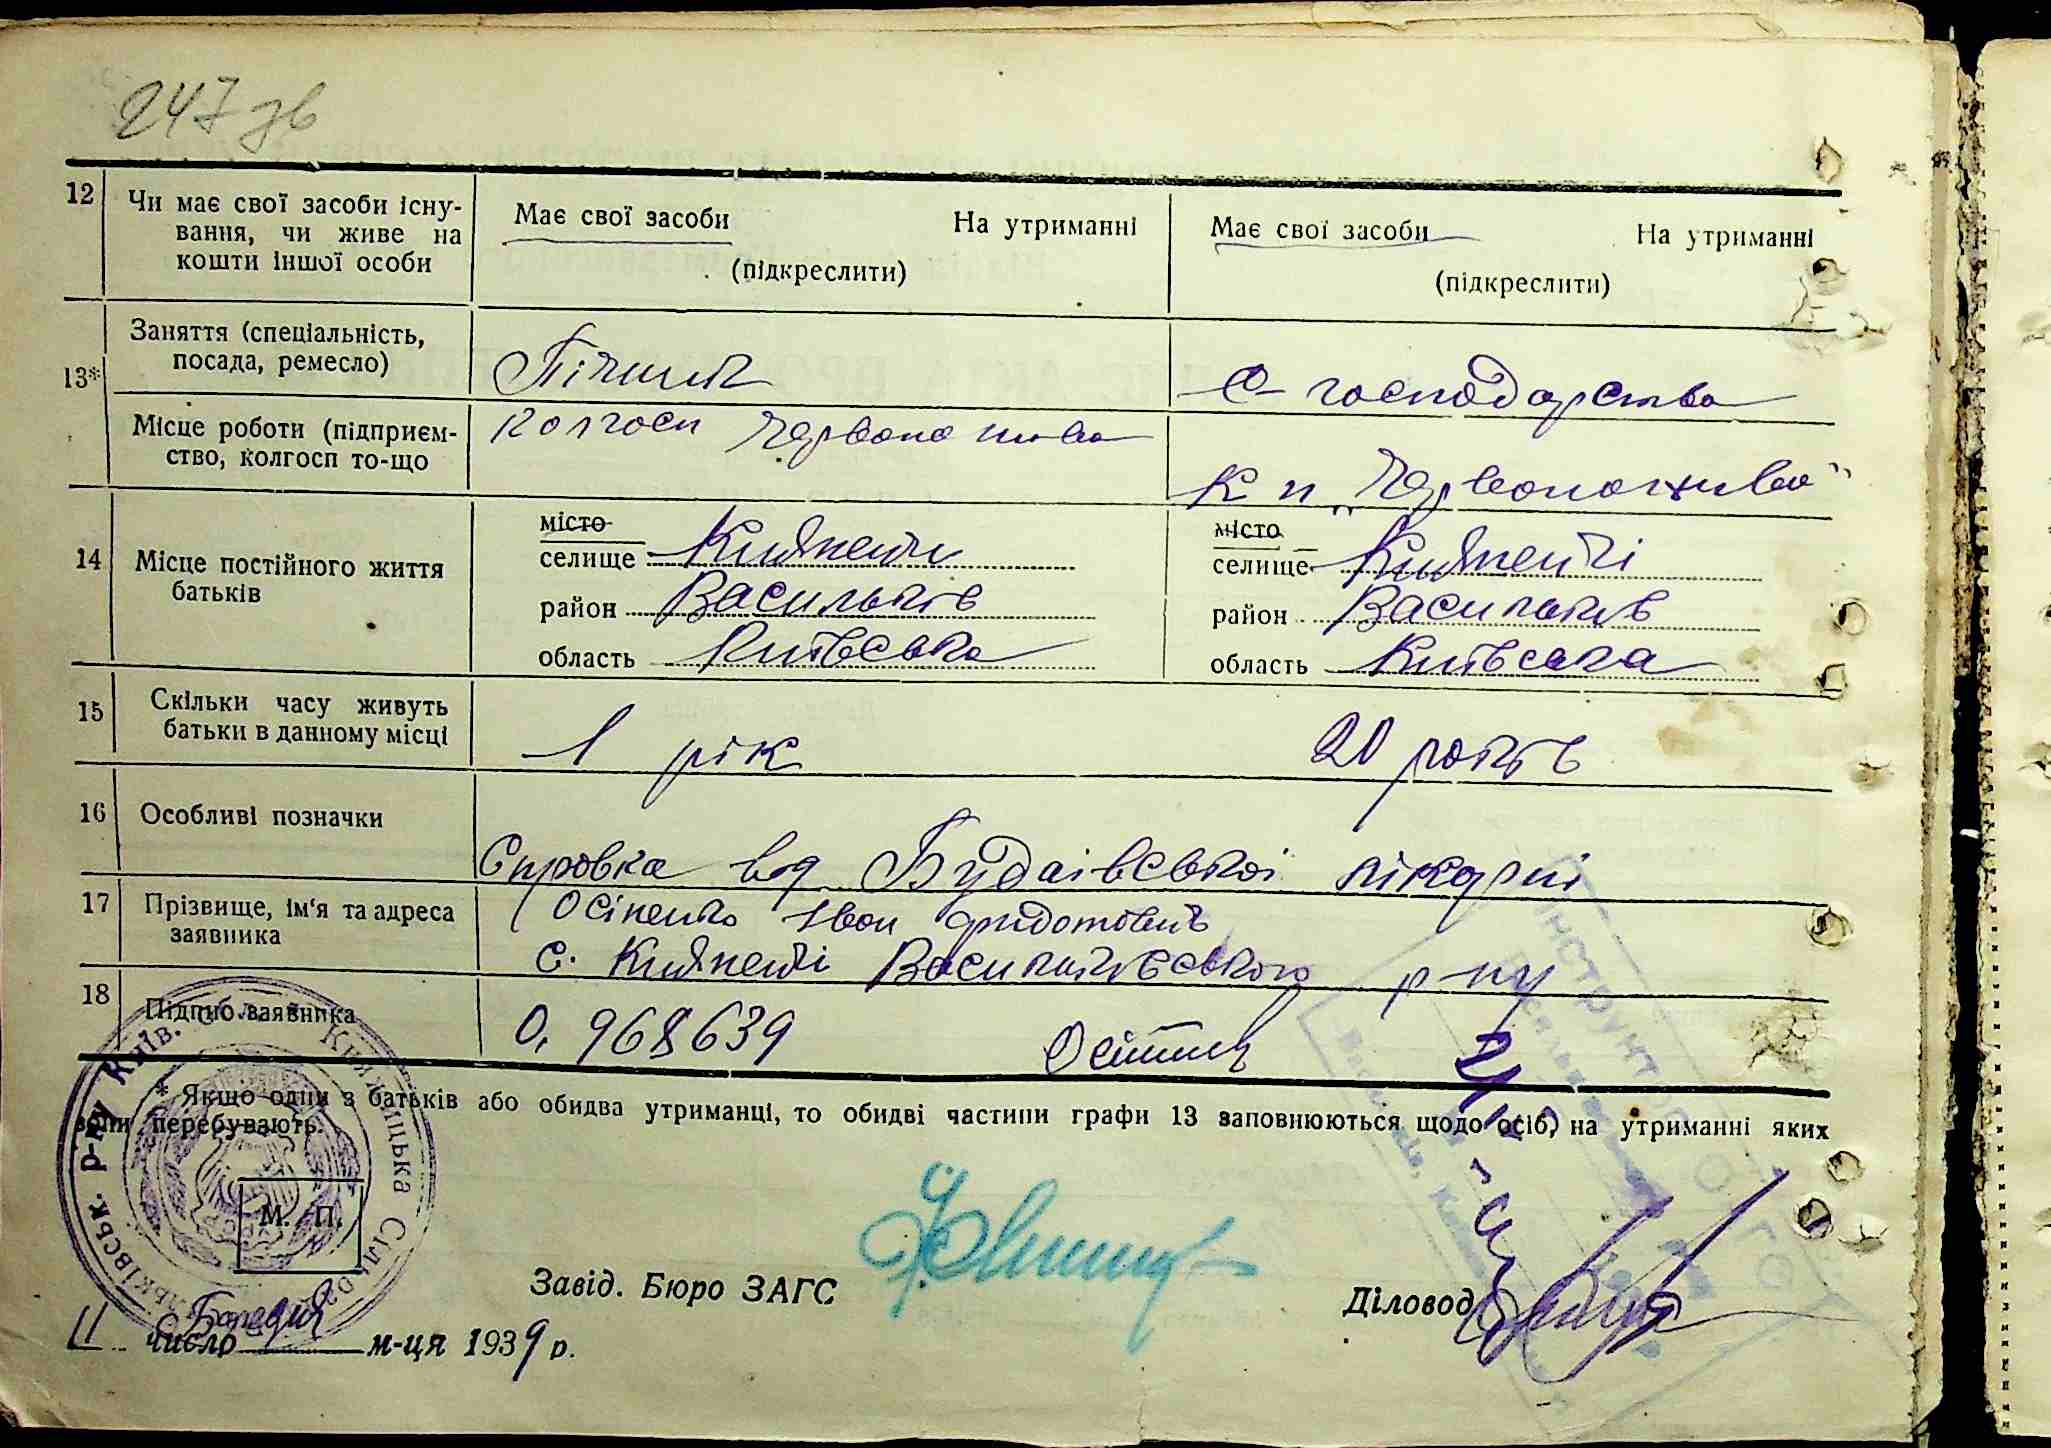 247 зв
12 Чи має свої засоби існу-
вання, чи живе на
кошти іншої особи
Має свої засоби На утриманні
(підкреслити)
Має свої засоби На утриманні
(підкреслити)
13* Заняття (спеціальність,
посада, ремесло)
Пічник
С-господарства
Місце роботи (підприєм-
ство, колгосп то-що
Колгосп Червона нива
К п "Червона нива"
14 Місце постійного життя
батьків
місто
селище Княжичи
район Васильків
область Київська
місто
селище Княжичі
район Васильків
область Київська
15 Скільки часу живуть
батьки в данному місці
1 рік
20 років
16 Особливі позначки
Справка від Будаівської лікарні
17 Прізвище, ім'я та адреса
заявника
Осіпенко Іван Федотович
с. Княжичі Васильківського р-ну
18 Підпис заявника
О. 968639
* Якщо одни з батьків або обидва утриманці, то обидві частини графи 13 заповнюються щодо осіб, на утриманні яких
вони перебувають.
М. П.
Завід. Бюро ЗАГС
Діловод
11 число м-ця 1939 р.